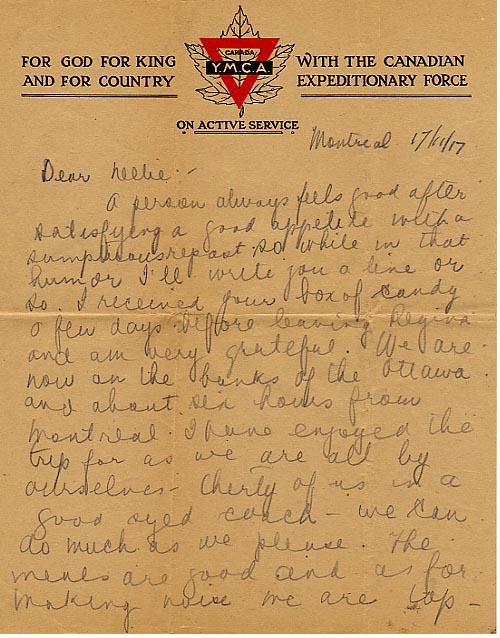 FOR GOD FOR KING
AND FOR COUNTRY
CANADA
Y.M.C.A.
WITH THE CANADIAN
EXPEDITIONARY FORCE
ON ACTIVE SERVICE
Montreal 17/11/17
Dear Nellie:-
A person always feels good after
satisfying a good appetite with a
sumptuous repast so while in that
humor I'll write you a line or
so. I received your box of candy
a few days before leaving Regina
and am very grateful. We are
now on the banks of the Ottawa
and about six hours from
Montreal. I have enjoyed the
trip for as we are all by
ourselves - therty of us in a
good syed coach - we can
do much as we please. The
meals are good and as for
making noise we are top-